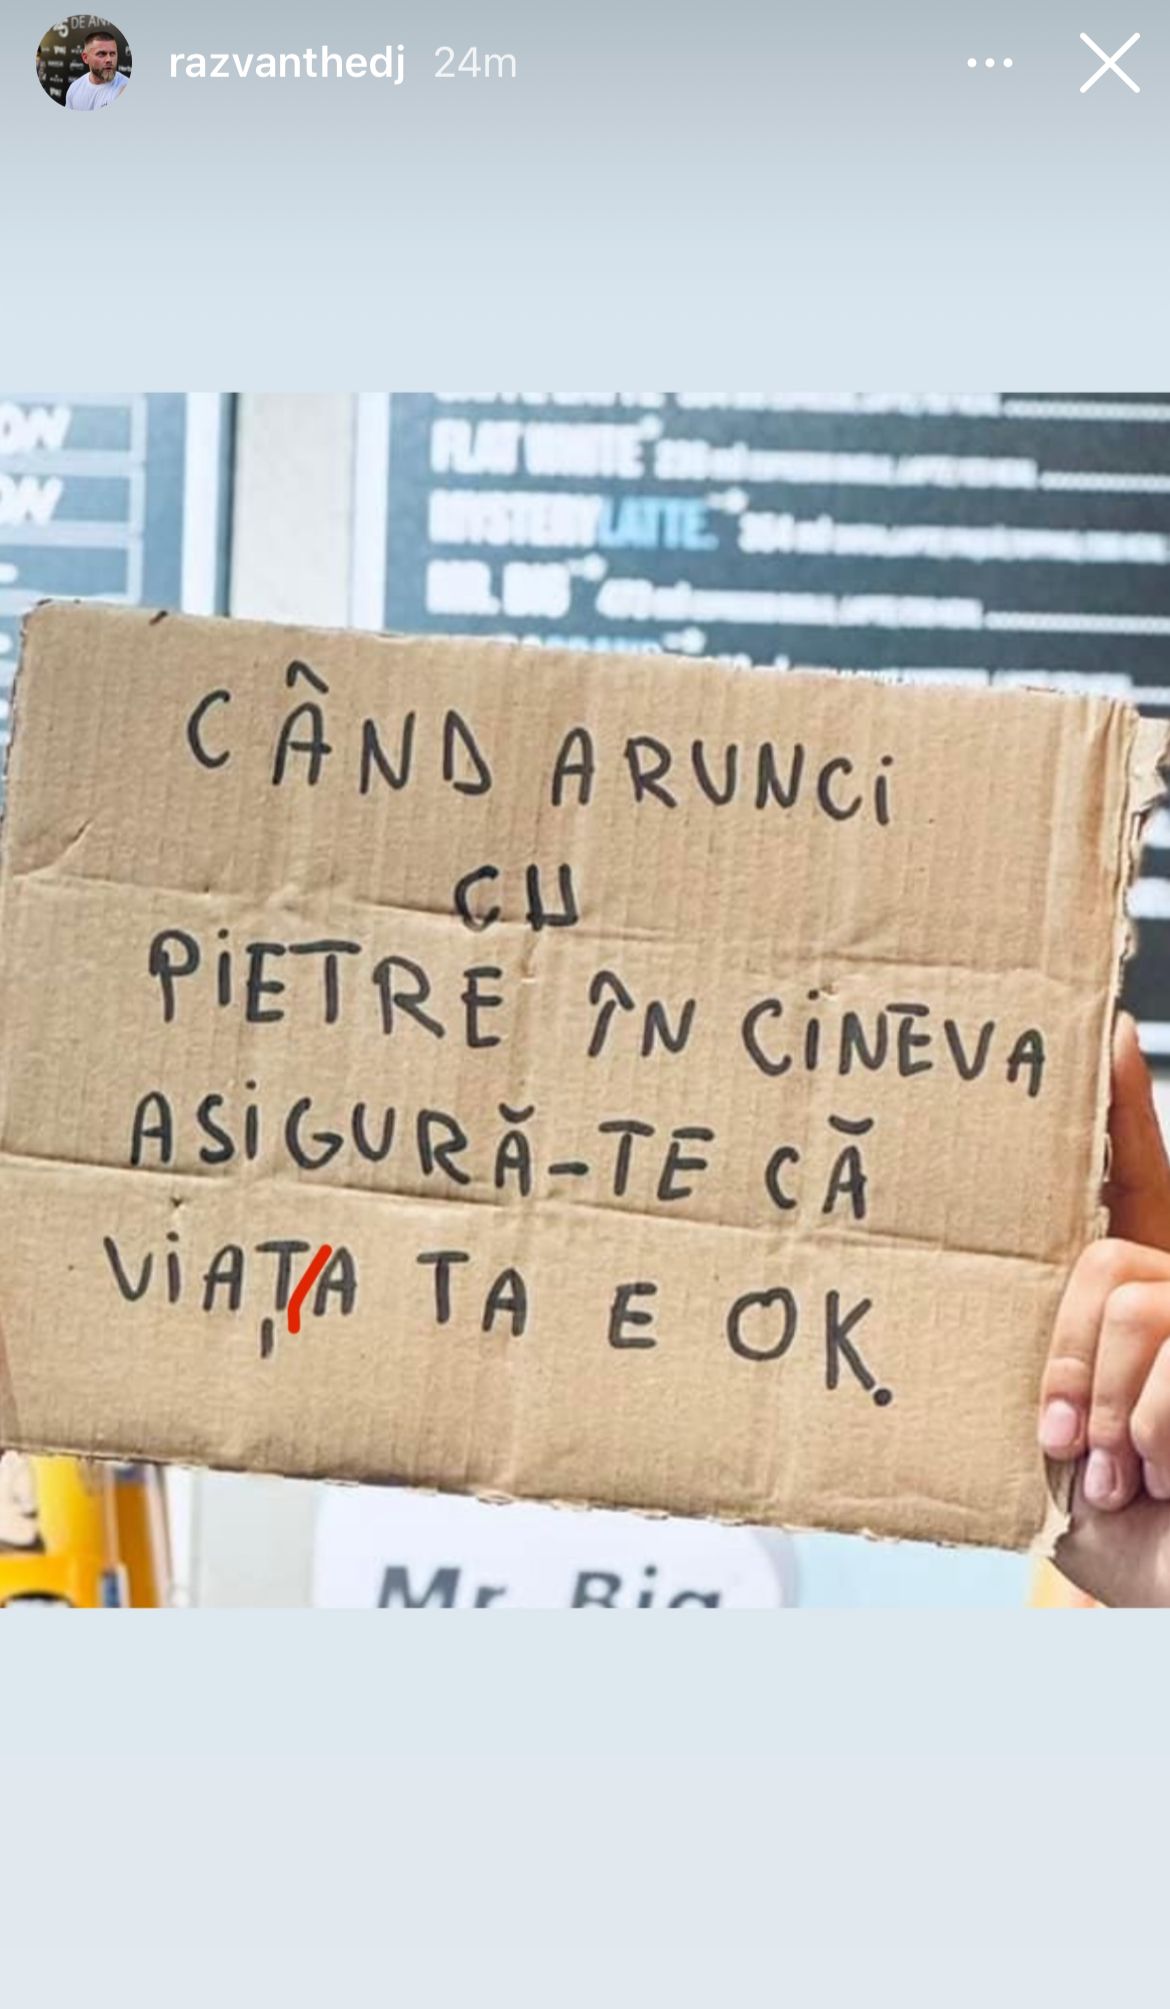 DE AN
razvanthedj 24m
ON
ON
FLAT WHITE
MYSTERY LATTE.
CÂND ARUNCi
CU
PiETRE ÎN CiNEVA
ASiGURĂ-TE CĂ
ViAȚA TA E OK.
Mr. Big